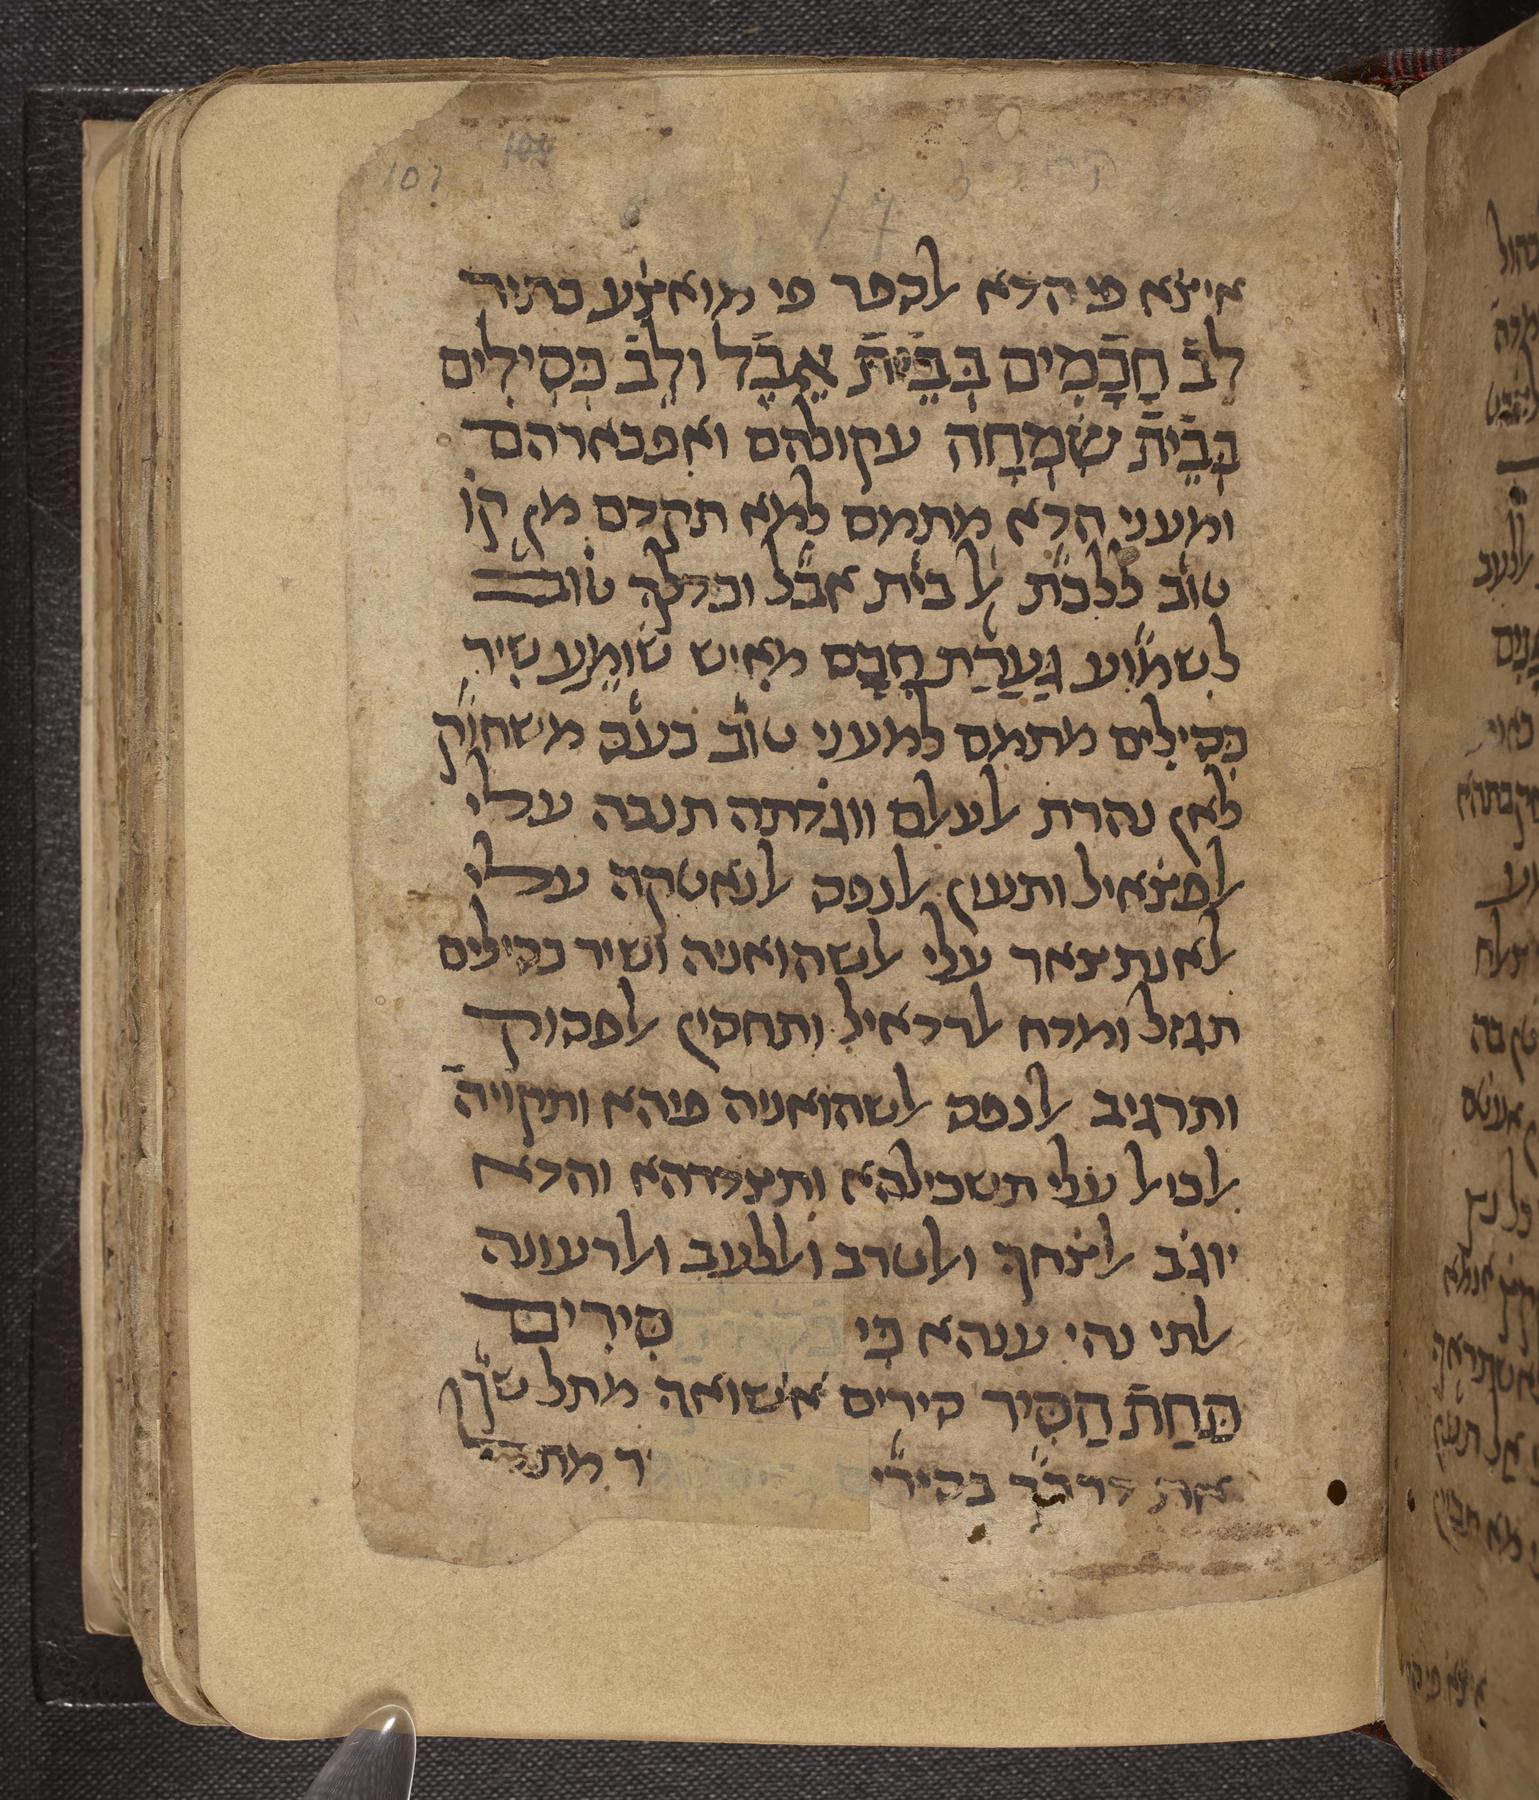 איצ̇א פי הדא אלספר פי מואצ̇ע כתיר
לֵב חֲכָמִים בְּבֵית אֵבֶל ולֵב כְּסִילִים
בְּבֵית שִׂמְחָה עקולהם ואפכארהם
ומעני הדא מתמם למא תקדם מן קו
טוב ללכת אל בית אבל וכדלך טוב
לשמוע גַּעֲרַת חָכָם מאיש שׁוֹמֵעַ שיר
כְּסִילִים מתמם למעני טוב כעס משחוק
לאן נהרת אלעאלם ווג̇דתה תנבה עלי
אלפצ̇איל ותעין אלנפס אלנאטקה עלי
אלאנתצאר עלי אלשהואניה ושיר כסילים
תגזל ומדח אלרדאיל ותחסין אלפסוק
ותרגיב אלנפס אלשהואניה פיהא ותקויה
אלכ̇יאל עלי תשכילהא ותצורהא והדא
יוג̇ב אלצ̇חך ואלטרב ואללעב ואלרעונה
אלתי נהי ענהא כִּי סִירִים
תַּחַת הַסִּיר סירים אשואך מתל שך
את דרכך בסירים מתל